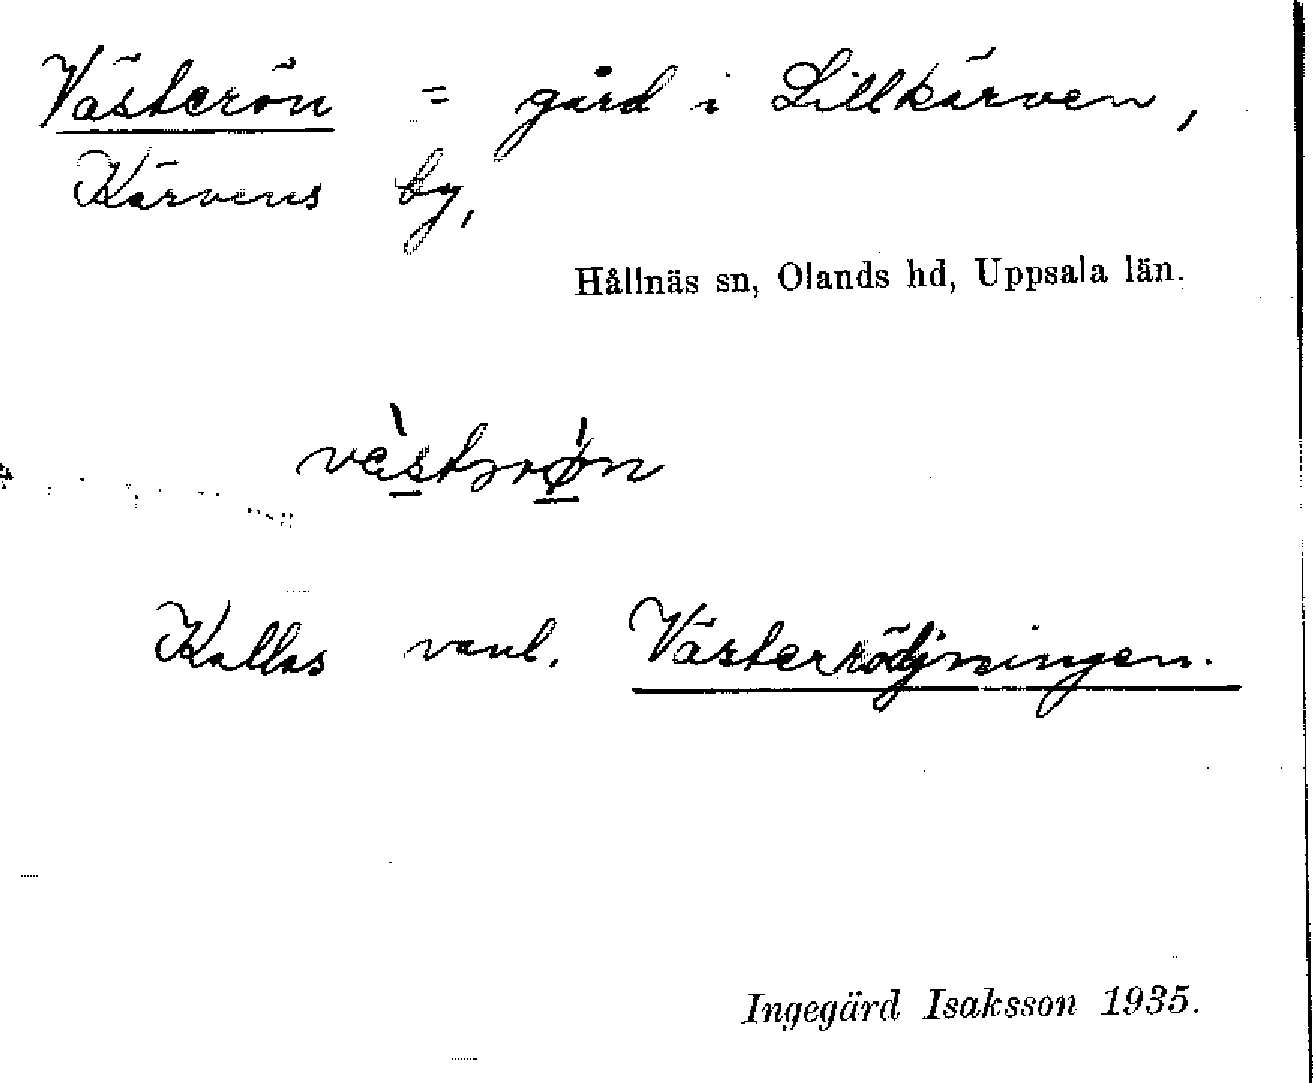 Västerön = gård i Lillkärven,
Kärvens by,
Hållnäs sn, Olands hd, Uppsala län.
Kallas vanl. Västerrödjningen.
Ingegärd Isaksson 1935.